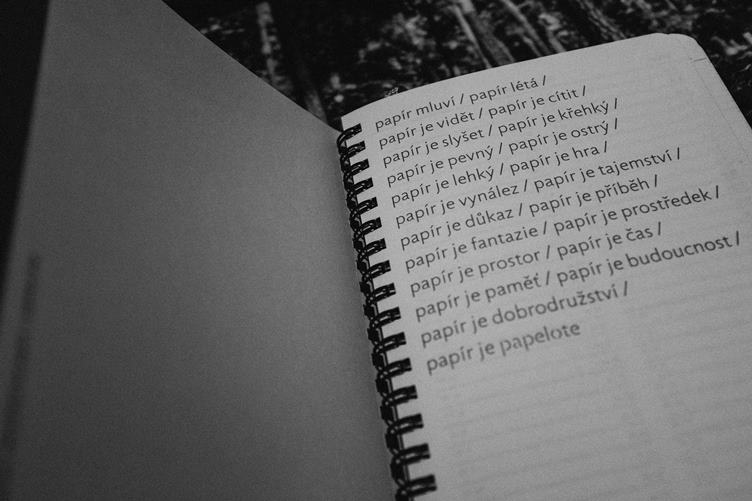 papír mluví / papír létá /
papír je vidět / papír je cítit /
papír je slyšet / papír je křehký /
papír je pevný / papír je ostrý /
papír je lehký / papír je hra /
papír je vynález / papír je tajemství /
papír je důkaz / papír je příběh /
papír je fantazie / papír je prostředek /
papír je prostor / papír je čas /
papír je paměť / papír je budoucnost /
papír je dobrodružství /
papír je papelote